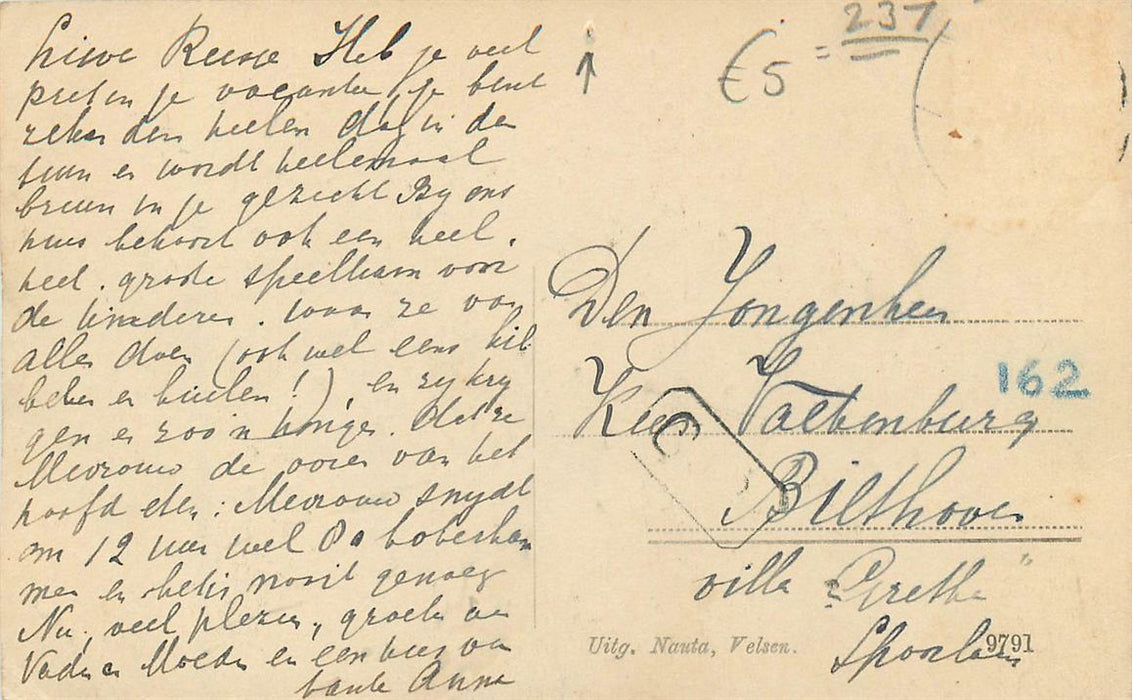 Lieve Keesje Heb je veel
pret in je vacantie, je bent
zeker den heelen dag in den
tuin en wordt heelemaal
bruin in je gezicht Bij ons
huis behoort ook een heel,
heel. groote speelkam voor
de kinderen. waar ze van
alles doen (ook wel eens kib
belen en huilen!), en zy kry
gen er zoo'n honger. dat ze
Mevrouw de ooren van het
hoofd eten: Mevrouw snydt
om 12 uur wel 80 boterham
men en het is nooit genoeg
Nu, veel plezier, groeten aan
Vader en Moeder en een kus van
tante Anna
237
€5 =
Den Jongenheer
Kees Valkenburg
162
Bilthoven
villa "Grethe"
Spoorlaan
Uitg. Nauta, Velsen.
9791